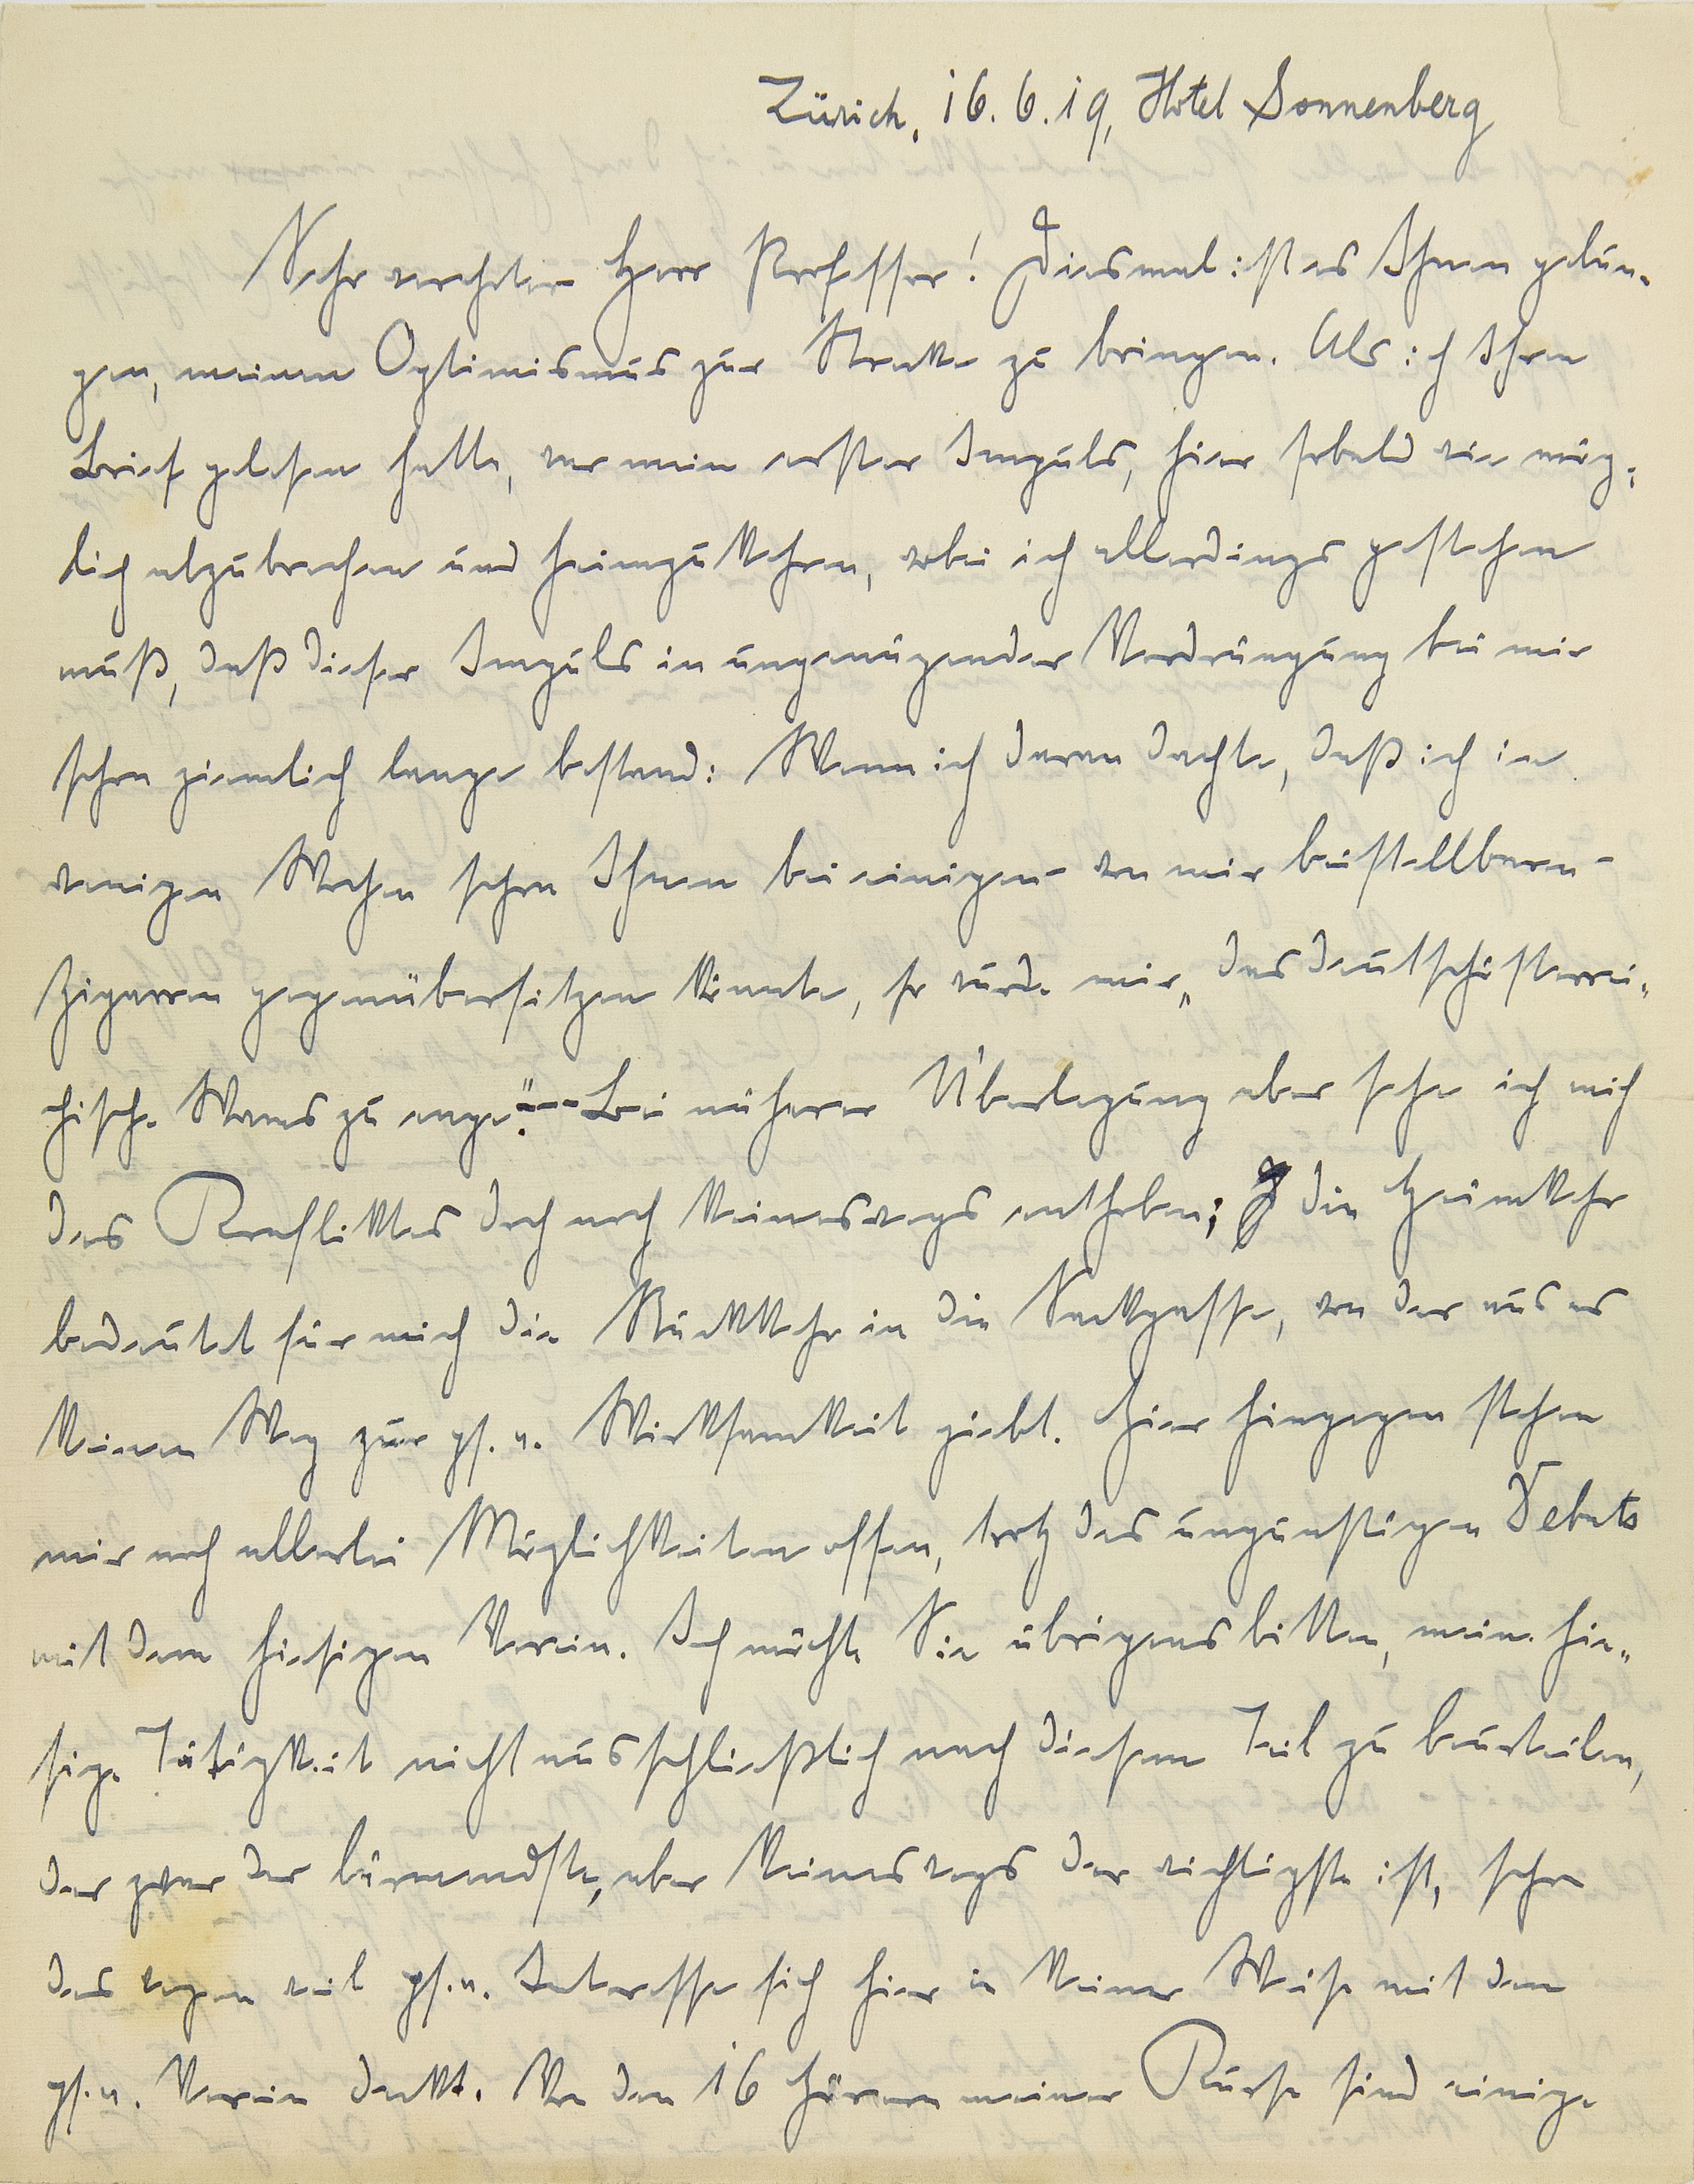 Zürich, 16.6.19, Hotel Sonnenberg
Sehr verehrter Herr Professor! Diesmal ist es Ihnen gelun-
gen, meinen Optimismus zur Strecke zu bringen. Als ich Ihren
Brief gelesen hatte, war mein erster Impuls, hier sobald wie mög-
lich abzubrechen und heimzukehren, wobei ich allerdings gestehen
muß, daß dieser Impuls in ungenügender Verdrängung bei mir
schon ziemlich lange bestand: Wenn ich daran dachte, daß ich in
wenigen Wochen schon Ihnen bei einigen - von mir beistellbaren -
Zigarren gegenübersitzen könnte, so wurde mir „das deutschösterrei-
chische Wams zu enge". -- Bei näherer Überlegung aber sehe ich mich
des Konfliktes doch noch keineswegs enthoben; die Heimkehr
bedeutet für mich die Rückkehr in die Sackgasse, von der aus es
keinen Weg zur ps. a. Wirksamkeit giebt. Hier hingegen stehen
mir noch allerlei Möglichkeiten offen, trotz des ungünstigen Debuts
mit dem hiesigen Verein. Ich möchte Sie übrigens bitten, meine hie-
sige Tätigkeit nicht ausschließlich nach diesem Teil zu beurteilen,
der zwar der lärmendste, aber keineswegs der wichtigste ist, schon
deswegen weil ps. a. Interesse sich hier in keiner Weise mit dem
ps. a. Verein deckt. Von den 16 Hörern meiner Kurse sind einige